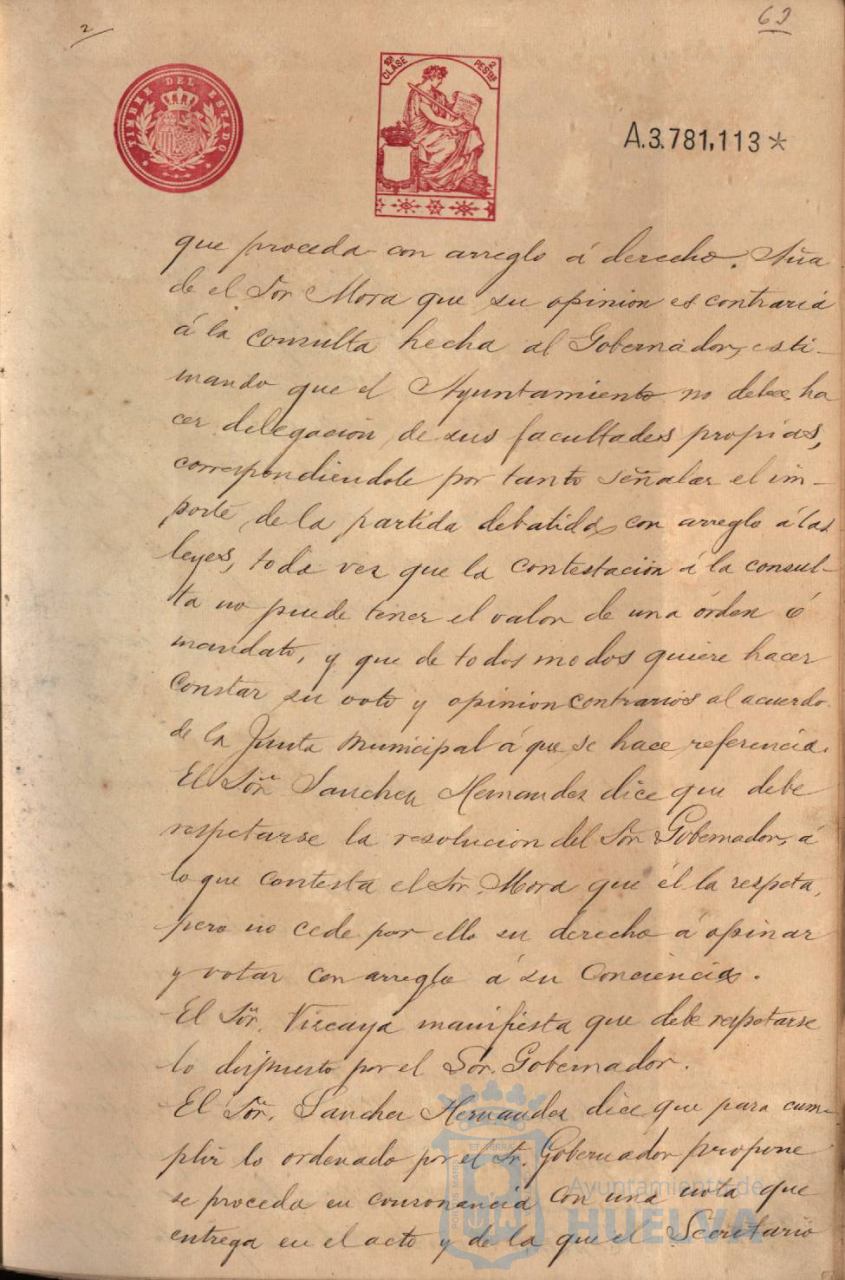 2
62
TIMBRE DEL ESTADO
10ª CLASE 2 PESTAS
A.3.781,113*
que proceda con arreglo á derecho. Aña
de el Sor Mora que su opinion es contraria
á la consulta hecha al Gobernador, esti-
mando que el Ayuntamiento no debe ha
cer delegación de sus facultades propias,
correspondiendole por tanto señalar el im-
porte de la partida debatida, con arreglo á las
leyes, toda vez que la contestación á la consul-
ta no puede tener el valor de una órden ó
mandato, y que de todos modos quiere hacer
constar su voto y opinion contrarios al acuerdo
de la Junta Municipal á que se hace referencia.
El Sor. Sanchez Hernandez dice que debe
respetarse la resolucion del Sor. Gobernador, á
lo que contesta el Sr. Mora que él la respeta,
pero no cede por ello su derecho á opinar
y votar con arreglo á su Conciencia.
El Sor. Vizcaya manifiesta que debe respetarse
lo dispuesto por el Sor. Gobernador.
El Sor. Sanchez Hernandez dice que para cum-
plir lo ordenado por el Sr. Gobernador propone
se proceda en consonancia con una nota que
entrega en el acto y de la que el Secretario
Ayuntamiento de
HUELVA